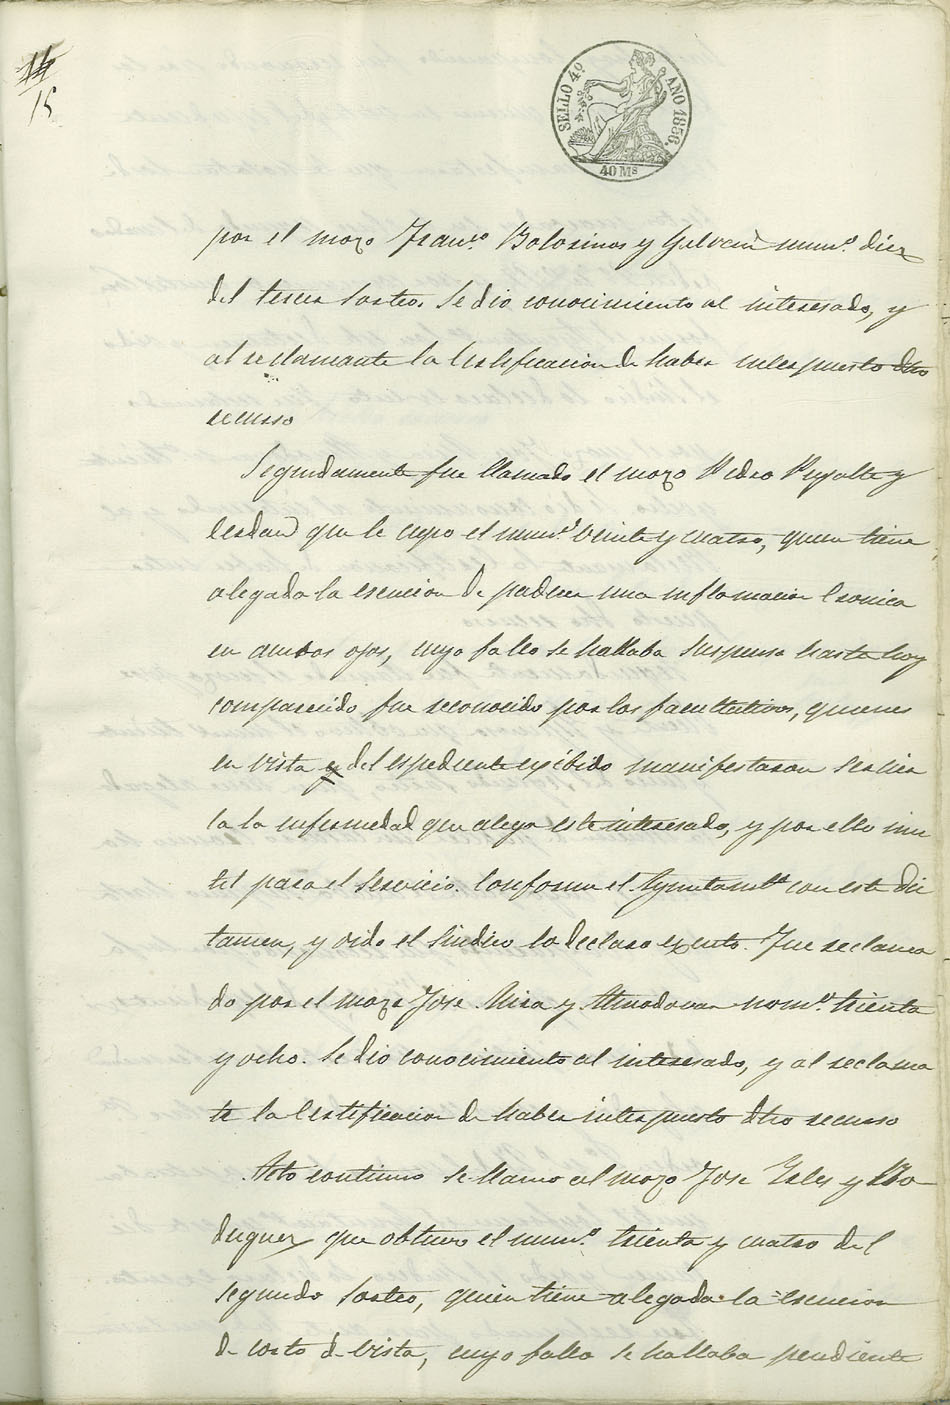 14
15
SELLO 4º AÑO 1856.
40 Ms
por el mozo Franco. Bolosinos y Galvan numo. diez
del tercer sorteo. Se dio conocimiento al interesado, y
al reclamante la Certificacion de haber interpuesto dho
recurso
Seguidamente fue llamado el mozo Pedro Puyalte y
que le cupo el numo. veinte y cuatro, quien tiene
alegada la esencion de padecer una inflamacion Cronica
en ambos ojos, cuyo fallo se hallaba suspenso hasta hoy
comparecido fue reconocido por los facultativos, quienes
en vista y del espediente exibido manifestaron ser cier
ta la enfermedad que alega este interesado, y por ello inu
til para el servicio. Conforme el Ayuntamto con este dic
tamen, y oido el Sindico lo declaro exento. Fue reclama
do por el mozo Jose Aisa y Almodovar nomo. treinta
y ocho. Se dio conocimiento al interesado, y al reclama
te la Certificacion de haber interpuesto dho recurso
Acto continuo se llamo al mozo Jose Isles y Ro-
driguez que obtuvo el numo. treinta y cuatro del
segundo sorteo, quien tiene alegada la esencion
de corto de vista, cuyo fallo se hallaba pendiente